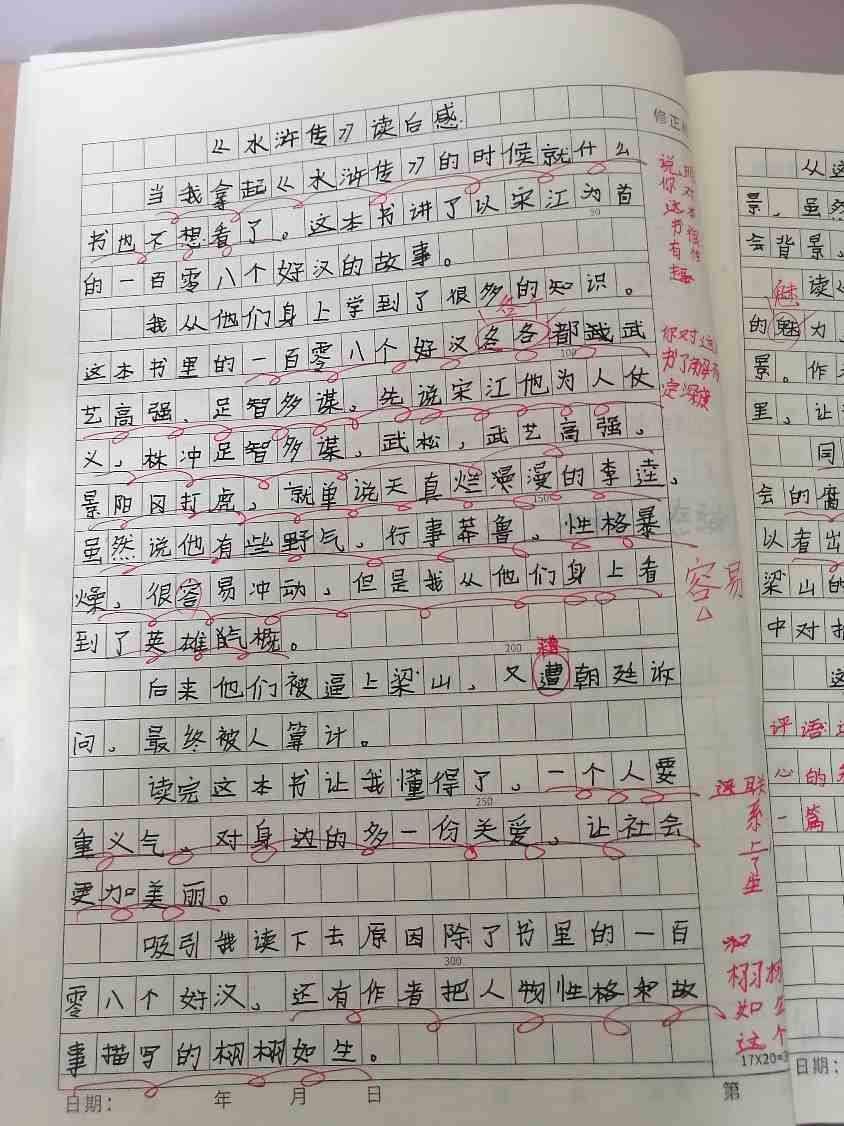 《水浒传》读后感
修正
当我拿起《水浒传》的时候就什么
书也不想看了。这本书讲了以宋江为首
的一百零八个好汉的故事。
我从他们身上学到了很多的知识。
这本书里的一百零八个好汉各各都武
艺高强、足智多谋。先说宋江他为人仗
义,林冲足智多谋,武松,武艺高强,
景阳冈打虎,就单说天真烂漫漫的李逵,
虽然说他有些野气,行事莽鲁,性格暴
燥,很容易冲动,但是我从他们身上看
到了英雄气概。
后来他们被逼上梁山,又遭朝廷诉
问,最终被人算计。
读完这本书让我懂得了,一个人要
重义气,对身边的多一份关爱,让社会
更加美丽。
吸引我读下去原因除了书里的一百
零八个好汉,还有作者把人物性格和故
事描写的栩栩如生。
50
100
150
200
250
300
17X20=3
日期: 年 月 日
第
容易
联系上了生
从这
景,虽然
会背景,
读《
魅
的魅力,
景。作
里,让
同
会的腐
以看出
梁山的
中对
这
评语
心的
一篇
日期: